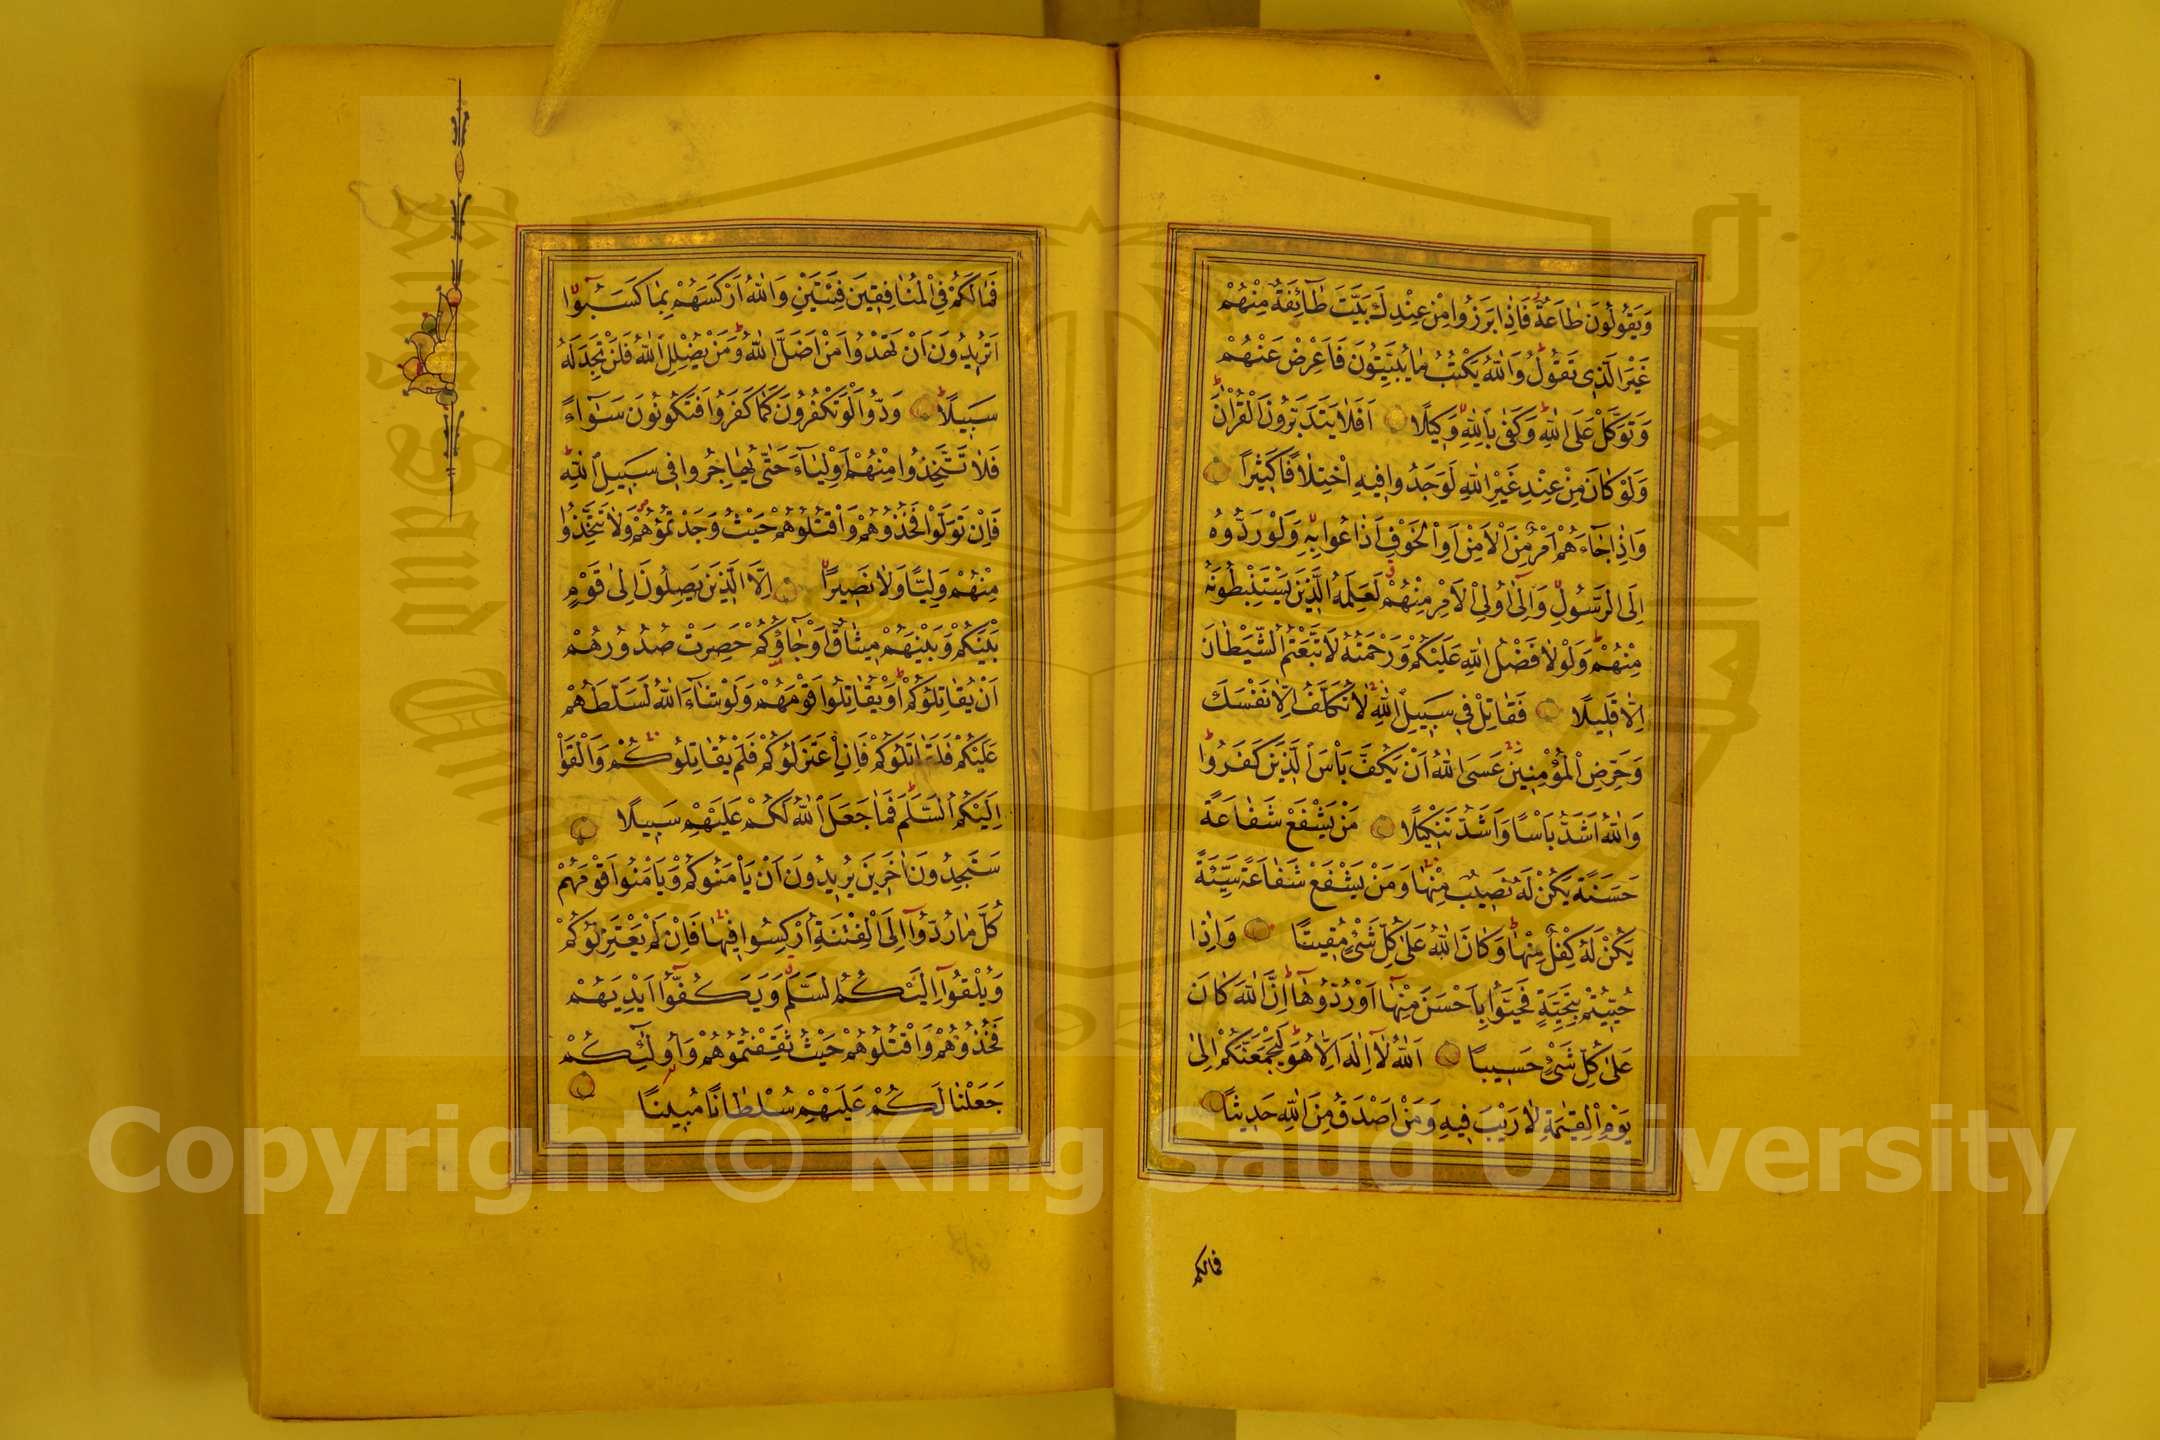 وَيَقُولُونَ طَاعَةٌ فَاِذَا بَرَزُوا مِنْ عِنْدِكَ بَيَّتَ طَآئِفَةٌ مِنْهُمْ
غَيْرَ الَّذِى تَقُولُ وَاللّٰهُ يَكْتُبُ مَا يُبَيِّتُونَ فَاَعْرِضْ عَنْهُمْ
وَتَوَكَّلْ عَلَى اللّٰهِ وَكَفٰى بِاللّٰهِ وَكِيلًا اَفَلَا يَتَدَبَّرُونَ الْقُرْاٰنَ
وَلَوْ كَانَ مِنْ عِنْدِ غَيْرِ اللّٰهِ لَوَجَدُوا فِيهِ اخْتِلَافًا كَثِيرًا
وَاِذَا جَآءَهُمْ اَمْرٌ مِنَ الْاَمْنِ اَوِ الْخَوْفِ اَذَاعُوا بِهِ وَلَوْ رَدُّوهُ
اِلَى الرَّسُولِ وَاِلٰٓى اُولِى الْاَمْرِ مِنْهُمْ لَعَلِمَهُ الَّذِينَ يَسْتَنْبِطُونَهُ
مِنْهُمْ وَلَوْلَا فَضْلُ اللّٰهِ عَلَيْكُمْ وَرَحْمَتُهُ لَاتَّبَعْتُمُ الشَّيْطَانَ
اِلَّا قَلِيلًا فَقَاتِلْ فِى سَبِيلِ اللّٰهِ لَا تُكَلَّفُ اِلَّا نَفْسَكَ
وَحَرِّضِ الْمُؤْمِنِينَ عَسَى اللّٰهُ اَنْ يَكُفَّ بَاْسَ الَّذِينَ كَفَرُوا
وَاللّٰهُ اَشَدُّ بَاْسًا وَاَشَدُّ تَنْكِيلًا مَنْ يَشْفَعْ شَفَاعَةً
حَسَنَةً يَكُنْ لَهُ نَصِيبٌ مِنْهَا وَمَنْ يَشْفَعْ شَفَاعَةً سَيِّئَةً
يَكُنْ لَهُ كِفْلٌ مِنْهَا وَكَانَ اللّٰهُ عَلٰى كُلِّ شَىْءٍ مُقِيتًا وَاِذَا
حُيِّيتُمْ بِتَحِيَّةٍ فَحَيُّوا بِاَحْسَنَ مِنْهَآ اَوْ رُدُّوهَآ اِنَّ اللّٰهَ كَانَ
عَلٰى كُلِّ شَىْءٍ حَسِيبًا اَللّٰهُ لَآ اِلٰهَ اِلَّا هُوَ لَيَجْمَعَنَّكُمْ اِلٰى
يَوْمِ الْقِيٰمَةِ لَا رَيْبَ فِيهِ وَمَنْ اَصْدَقُ مِنَ اللّٰهِ حَدِيثًا
فمالكم
فَمَا لَكُمْ فِى الْمُنَافِقِينَ فِئَتَيْنِ وَاللّٰهُ اَرْكَسَهُمْ بِمَا كَسَبُوا
اَتُرِيدُونَ اَنْ تَهْدُوا مَنْ اَضَلَّ اللّٰهُ وَمَنْ يُضْلِلِ اللّٰهُ فَلَنْ تَجِدَ لَهُ
سَبِيلًا وَدُّوا لَوْ تَكْفُرُونَ كَمَا كَفَرُوا فَتَكُونُونَ سَوَآءً
فَلَا تَتَّخِذُوا مِنْهُمْ اَوْلِيَآءَ حَتّٰى يُهَاجِرُوا فِى سَبِيلِ اللّٰهِ
فَاِنْ تَوَلَّوْا فَخُذُوهُمْ وَاقْتُلُوهُمْ حَيْثُ وَجَدْتُمُوهُمْ وَلَا تَتَّخِذُوا
مِنْهُمْ وَلِيًّا وَلَا نَصِيرًا اِلَّا الَّذِينَ يَصِلُونَ اِلٰى قَوْمٍ
بَيْنَكُمْ وَبَيْنَهُمْ مِيثَاقٌ اَوْ جَآؤُكُمْ حَصِرَتْ صُدُورُهُمْ
اَنْ يُقَاتِلُوكُمْ اَوْ يُقَاتِلُوا قَوْمَهُمْ وَلَوْ شَآءَ اللّٰهُ لَسَلَّطَهُمْ
عَلَيْكُمْ فَلَقَاتَلُوكُمْ فَاِنِ اعْتَزَلُوكُمْ فَلَمْ يُقَاتِلُوكُمْ وَاَلْقَوْا
اِلَيْكُمُ السَّلَمَ فَمَا جَعَلَ اللّٰهُ لَكُمْ عَلَيْهِمْ سَبِيلًا
سَتَجِدُونَ اٰخَرِينَ يُرِيدُونَ اَنْ يَاْمَنُوكُمْ وَيَاْمَنُوا قَوْمَهُمْ
كُلَّ مَا رُدُّوٓا اِلَى الْفِتْنَةِ اُرْكِسُوا فِيهَا فَاِنْ لَمْ يَعْتَزِلُوكُمْ
وَيُلْقُوٓا اِلَيْكُمُ السَّلَمَ وَيَكُفُّوٓا اَيْدِيَهُمْ
فَخُذُوهُمْ وَاقْتُلُوهُمْ حَيْثُ ثَقِفْتُمُوهُمْ وَاُولٰٓئِكُمْ
جَعَلْنَا لَكُمْ عَلَيْهِمْ سُلْطَانًا مُبِينًا
Copyright © King Saud University
King Saud University
1957